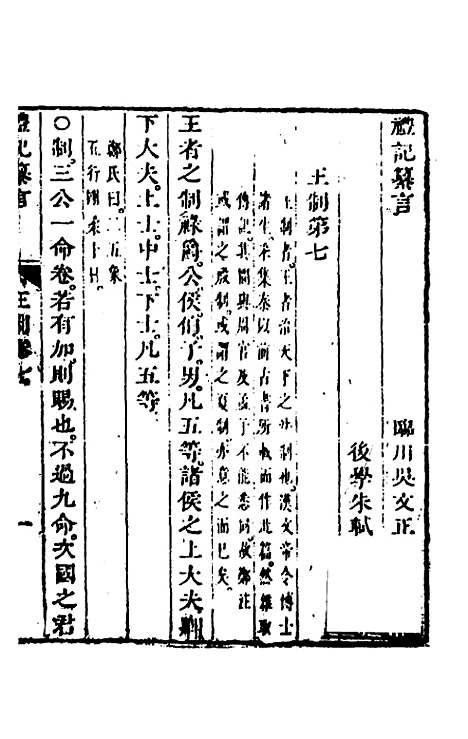 禮記纂言
臨川吳文正
後學朱軾
王制第七
王制者王者治天下之法制也漢文帝令博士
諸生采集秦以前古書所載而作此篇然雜取
傳記其間與周官及孟子不能悉同故鄭注
或謂之殷制或謂之夏制亦意之而已矣
王者之制祿爵公侯伯子男凡五等諸侯之上大夫卿
下大夫上士中士下士凡五等
鄭氏曰二五象
五行剛柔十日
○制三公一命卷若有加則賜也不過九命次國之君
禮記纂言
王制卷七
一